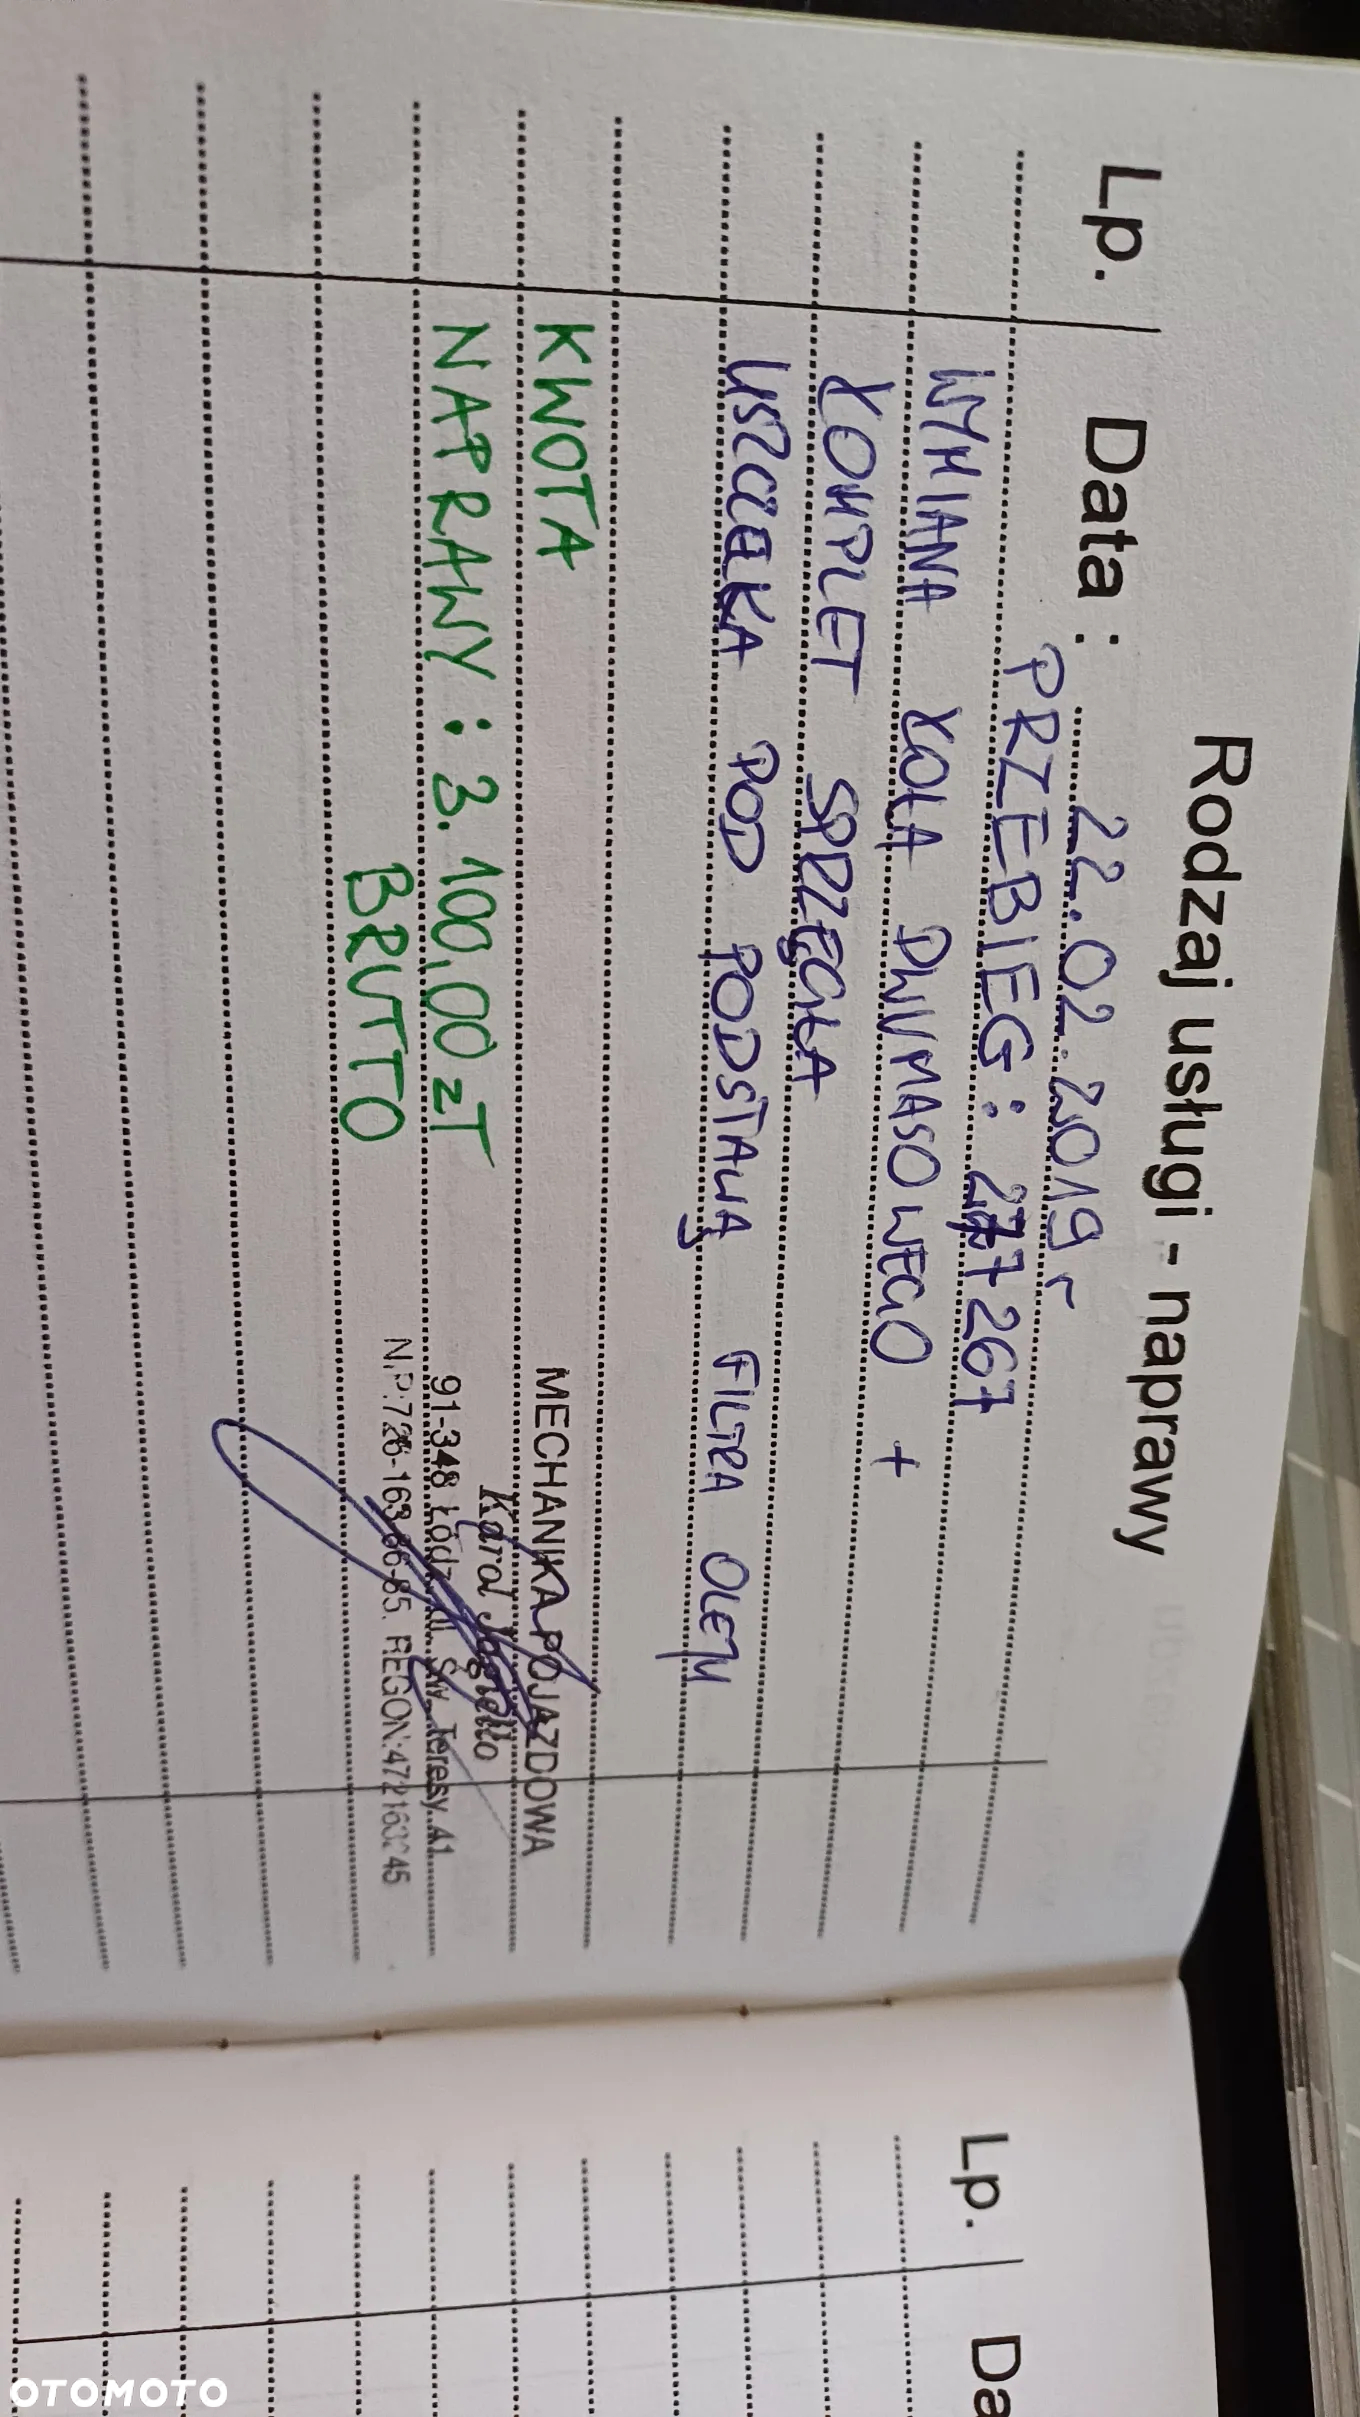 Rodzaj usługi - naprawy
Lp. Data : 22.02.2019 r
PRZEBIEG : 277267
WYMIANA KOŁA DWUMASOWEGO +
KOMPLET SPRZĘGŁA
USZCZELKA POD PODSTAWĄ FILTRA OLEJU
KWOTA
NAPRAWY : 3.100,00 zł
BRUTTO
MECHANIKA POJAZDOWA
Karol Jagiełło
91-348 Łódź, ul. Św. Teresy 41
NIP:726-163-66-85, REGON:
Lp. Da
OTOMOTO